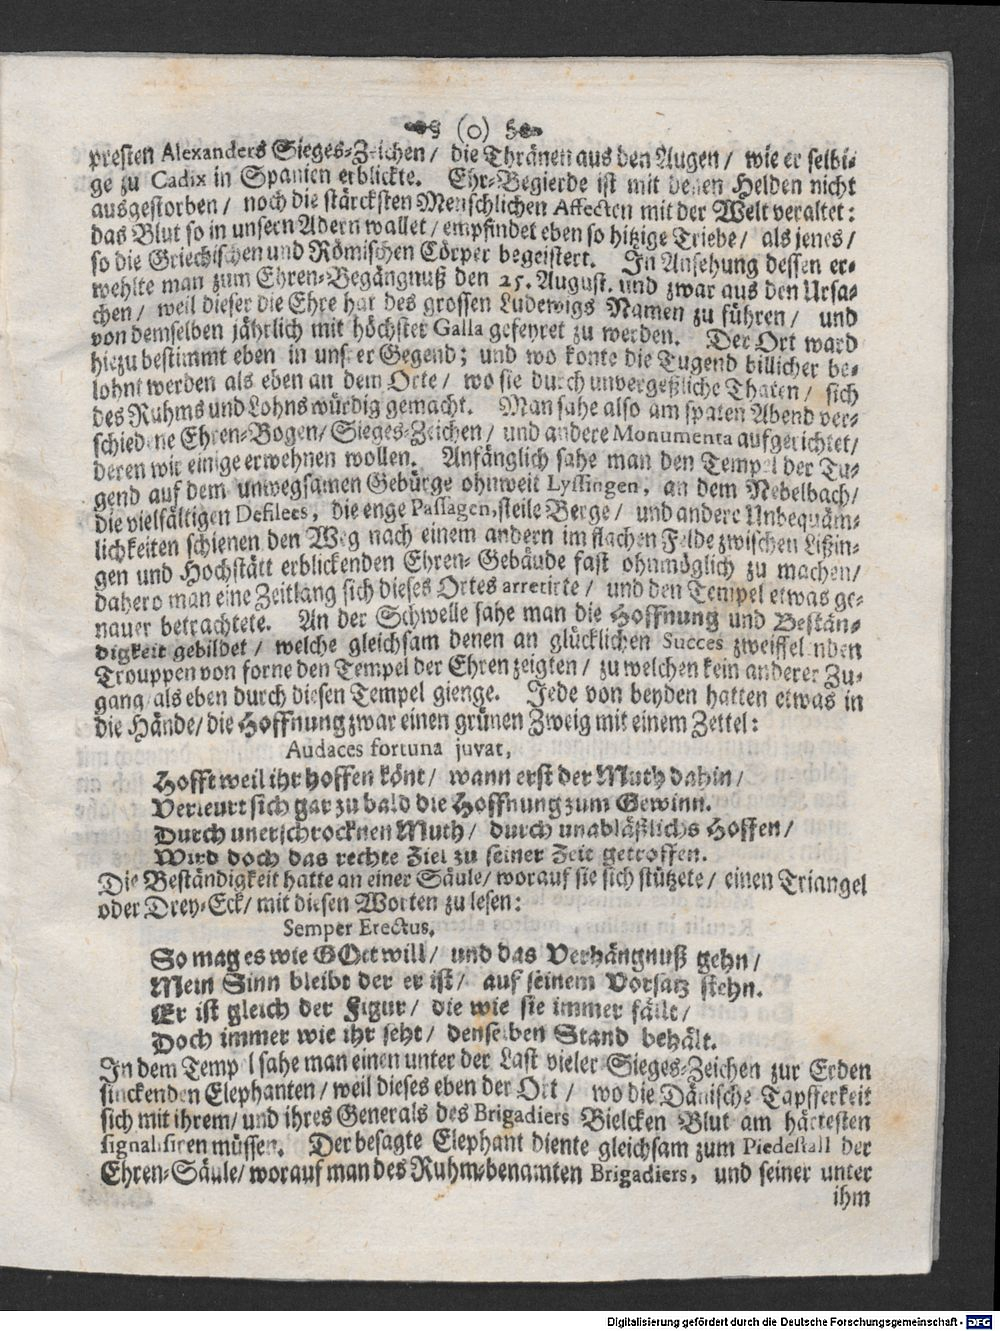 (o)
presten Alexanders Sieges-Zeichen / die Thränen aus den Augen / wie er selbi-
ge zu Cadix in Spanien erblickte. Ehr-Begierde ist mit denen Helden nicht
ausgestorben / noch die stärcksten Menschlichen Affecten mit der Welt veraltet:
das Blut so in unsern Adern wallet / empfindet eben so hitzige Triebe / als jenes /
so die Griechischen und Römischen Cörper begeistert. In Ansehung dessen er-
wehlte man zum Ehren-Begängnuß den 25. August. und zwar aus den Ursa-
chen / weil dieser die Ehre hat des grossen Ludewigs Namen zu führen / und
von demselben jährlich mit höchster Galla gefeyret zu werden. Der Ort ward
hiezu bestimmt eben in unserer Gegend; und wo konte die Tugend billicher be-
lohnt werden als eben an dem Orte / wo sie durch unvergeßliche Thaten / sich
des Ruhms und Lohns würdig gemacht. Man sahe also am spaten Abend ver-
schiedene Ehren-Bogen / Sieges-Zeichen / und andere Monumenta aufgerichtet /
deren wir einige erwehnen wollen. Anfänglich sahe man den Tempel der Tu-
gend auf dem unwegsamen Gebürge ohnweit Lyssingen, an dem Nebelbach /
die vielfältigen Defileés, die enge Passagen, steile Berge / und andere Unbequäm-
lichkeiten schienen den Weg nach einem andern im flachen Felde zwischen Lißin-
gen und Hochstätt erblickenden Ehren-Gebäude fast ohnmöglich zu machen /
dahero man eine Zeitlang sich dieses Ortes arretirte / und den Tempel etwas ge-
nauer betrachtete. An der Schwelle sahe man die Hoffnung und Bestän-
digkeit gebildet / welche gleichsam denen an glücklichen Succes zweiffelenden
Trouppen von forne den Tempel der Ehren zeigten / zu welchen kein anderer Zu-
gang als eben durch diesen Tempel gienge. Jede von beyden hatten etwas in
die Hände / die Hoffnung zwar einen grünen Zweig mit einem Zettel:
Audaces fortuna juvat,
Hofft weil ihr hoffen könt / wann erst der Muth dahin /
Verleurt sich gar zu bald die Hoffnung zum Gewinn.
Durch unerschrocknen Muth / durch unabläßlichs Hoffen /
Wird doch das rechte Ziel zu seiner Zeit getroffen.
Die Beständigkeit hatte an einer Säule / worauf sie sich stützete / einen Triangel
oder Drey-Eck / mit diesen Worten zu lesen:
Semper Erectus,
So mag es wie GOtt will / und das Verhängnuß gehn /
Mein Sinn bleibt der er ist / auf seinem Vorsatz stehn.
Er ist gleich der Figur / die wie sie immer fällt /
Doch immer wie ihr seht / denselben Stand behält.
In dem Tempel sahe man einen unter der Last vieler Sieges-Zeichen zur Erden
sinckenden Elephanten / weil dieses eben der Ort / wo die Dänische Tapfferkeit
sich mit ihrem / und ihres Generals des Brigadiers Bielcken Blut am härtesten
signalisiren müssen. Der besagte Elephant diente gleichsam zum Piedestall der
Ehren-Säule / worauf man des Ruhm-benamten Brigadiers, und seiner unter
ihm
Digitalisierung gefördert durch die Deutsche Forschungsgemeinschaft - DFG